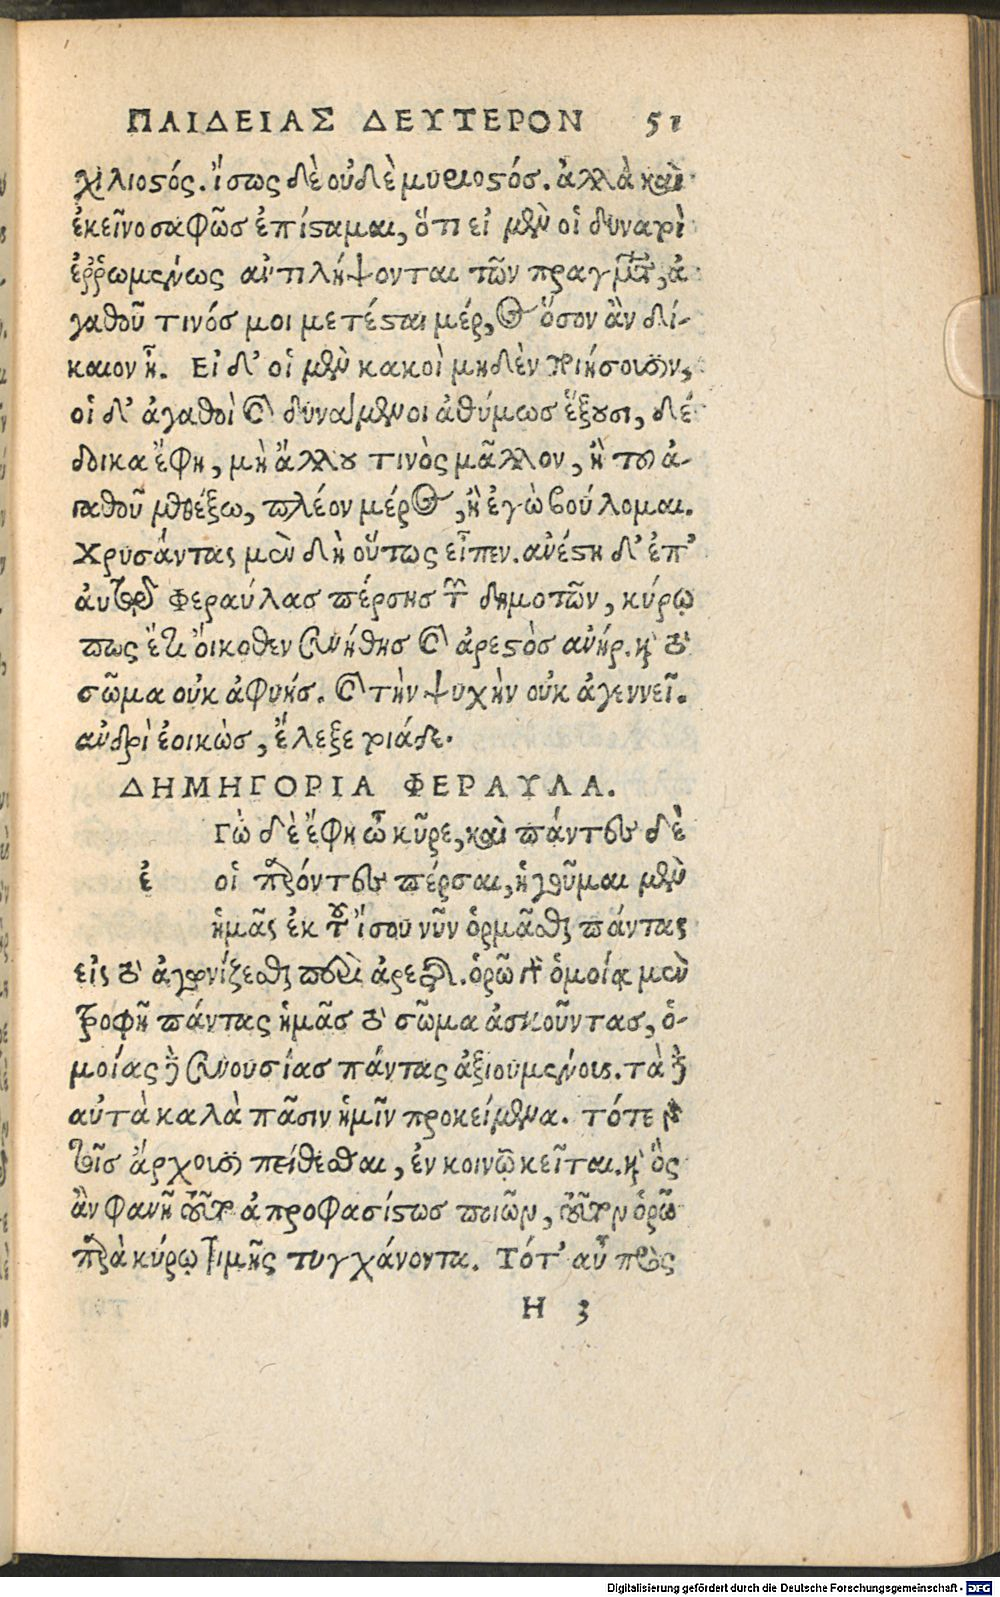 ΠΑΙΔΕΙΑΣ ΔΕΥΤΕΡΟΝ 51
χιλιοστός. ἴσως δὲ οὐδὲ μυριοστός. ἀλλὰ καὶ
ἐκεῖνο σαφῶς ἐπίσταμαι, ὅτι εἰ μὲν οἱ δυνατοὶ
ἐῤῥωμένως ἀντιλήψονται τῶν πραγμάτων, ἀ
γαθοῦ τινός μοι μετέσται μέρος, ὅσον ἂν δί-
καιον ᾖ. Εἰ δ' οἱ μὲν κακοὶ μηδὲν ποιήσουσιν,
οἱ δ' ἀγαθοὶ καὶ δυνάμενοι ἀθύμως ἕξουσι, δέ
δοικα ἔφη, μὴ ἄλλου τινὸς μᾶλλον, ἢ τοῦ ἀ-
γαθοῦ μεθέξω, πλέον μέρος, ἢ ἐγὼ βούλομαι.
Χρυσάντας μὲν δὴ οὕτως εἶπεν. ἀνέστη δ' ἐπ'
αὐτῷ Φεραύλας πέρσης τῶν δημοτῶν, κύρῳ
πως ἔτι οἴκοθεν συνήθης καὶ ἀρεστὸς ἀνήρ. καὶ τὸ
σῶμα οὐκ ἀφυής. καὶ τὴν ψυχὴν οὐκ ἀγεννεῖ.
ἀνδρὶ ἐοικὼς, ἔλεξε τοιάδε.
ΔΗΜΗΓΟΡΙΑ ΦΕΡΑΥΛΑ.
Γὼ δὲ ἔφη ὦ κῦρε, καὶ πάντες δὲ
ἐ οἱ παρόντες πέρσαι, ἡγοῦμαι μὲν
ἡμᾶς ἐκ τοῦ ἴσου νῦν ὁρμᾶσθαι πάντας
εἰς τὸ ἀγωνίζεσθαι περὶ ἀρετῆς. ὁρῶ γὰρ ὁμοίᾳ μὲν
τροφῇ πάντας ἡμᾶς τὸ σῶμα ἀσκοῦντας, ὁ-
μοίας δὲ συνουσίας πάντας ἀξιουμένους. τὰ δὲ
αὐτὰ καλὰ πᾶσιν ἡμῖν προκείμενα. τότε γὰρ
τοῖς ἄρχουσι πείθεσθαι, ἐν κοινῷ κεῖται. καὶ ὃς
ἂν φανῇ τοῦτο ἀπροφασίστως ποιῶν, τοῦτον ὁρῶ
παρὰ κύρῳ τιμῆς τυγχάνοντα. Τότ' αὖ πρὸς
Η 3
Digitalisierung gefördert durch die Deutsche Forschungsgemeinschaft - DFG